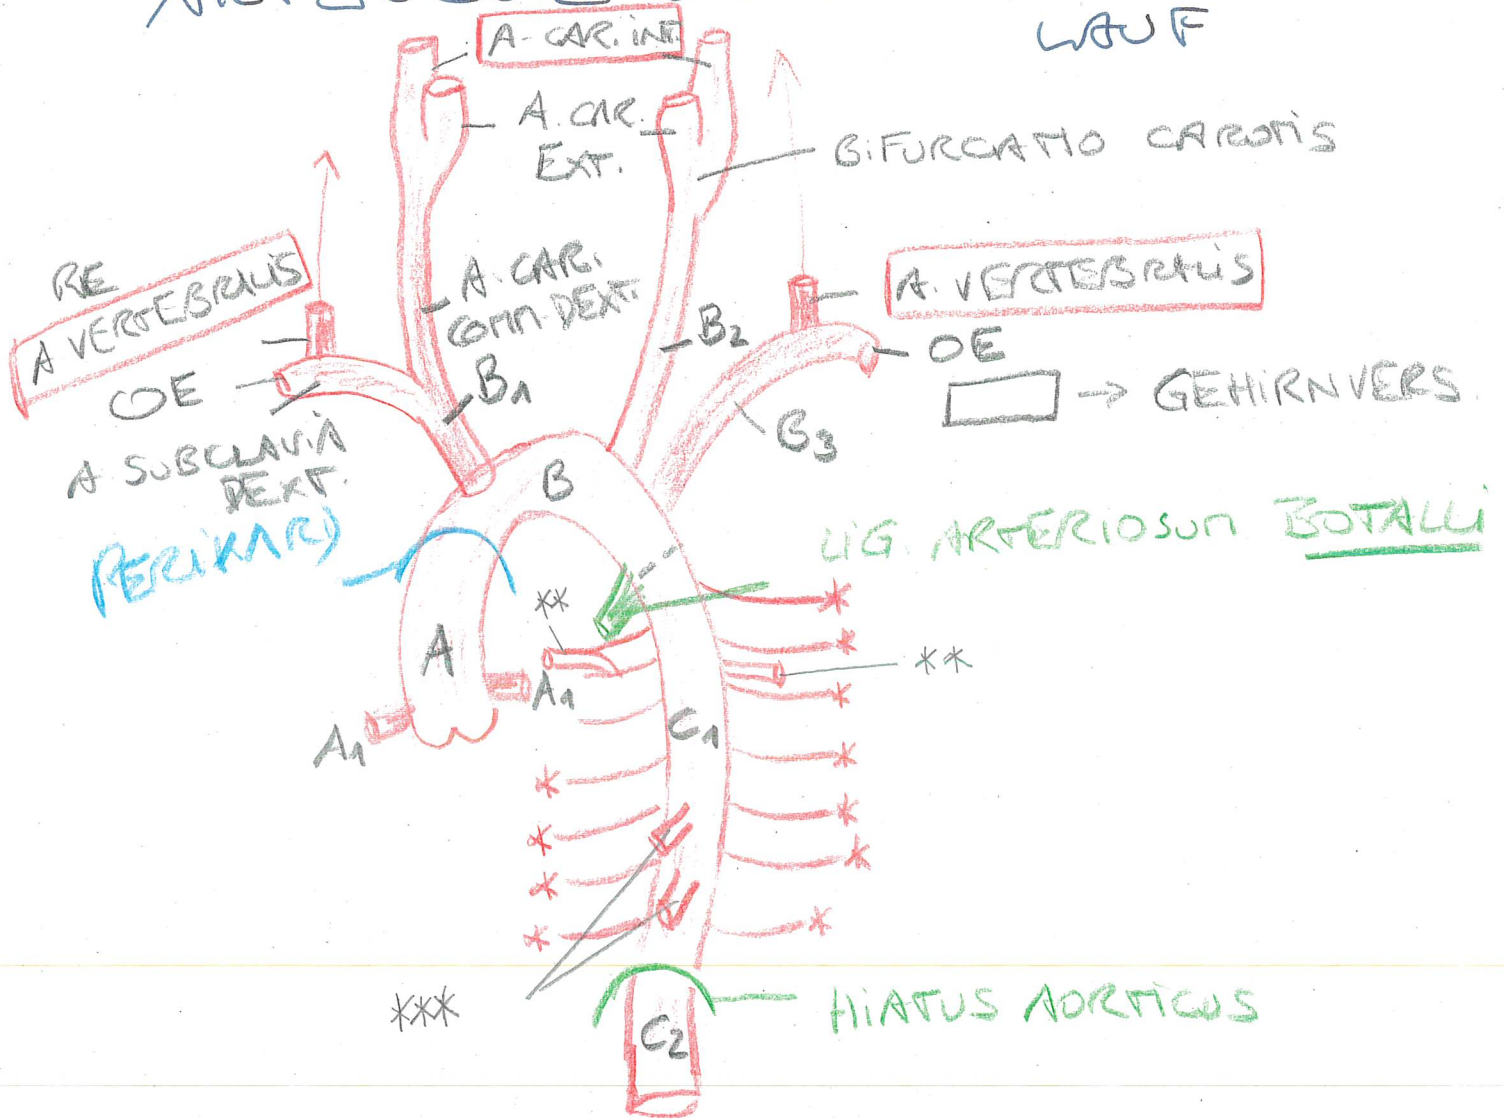 LAUF
A. CAR. INT.
A. CAR.
EXT.
BIFURCATIO CAROTIS
RE
A VERTEBRALIS
A. CAR.
COMM. DEXT.
A. VERTEBRALIS
B2
OE
OE
B1
→ GEHIRNVERS.
B3
A SUBCLAVIA
DEXT.
B
PERIKARD
LIG. ARTERIOSUM BOTALLI
**
*
*
A
**
A1
*
C1
A1
*
*
*
*
*
*
*
*
***
HIATUS AORTICUS
C2